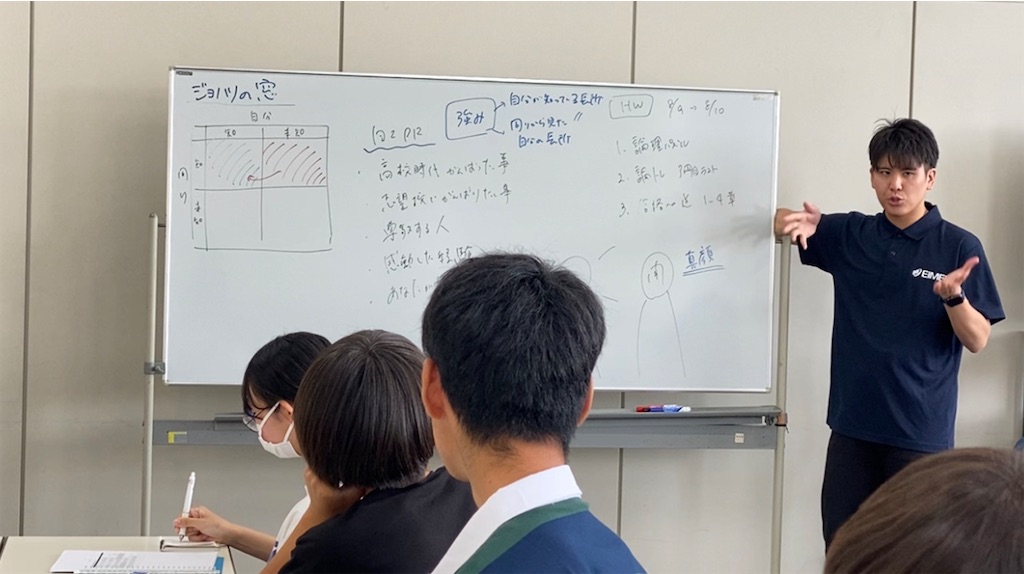 ジョハリの窓
自分
知
未知
周り
知
未知
自己PR
・高校時代がんばった事
・志望校でがんばりたい事
・尊敬する人
・感動した経験
・あなたが
強み
自分が知っている長所
周りから見た
自分の長所
HW 8/9 → 8/10
1.
2. 論トレ
3. 合格への道 1-4章
周
真顔
EIME